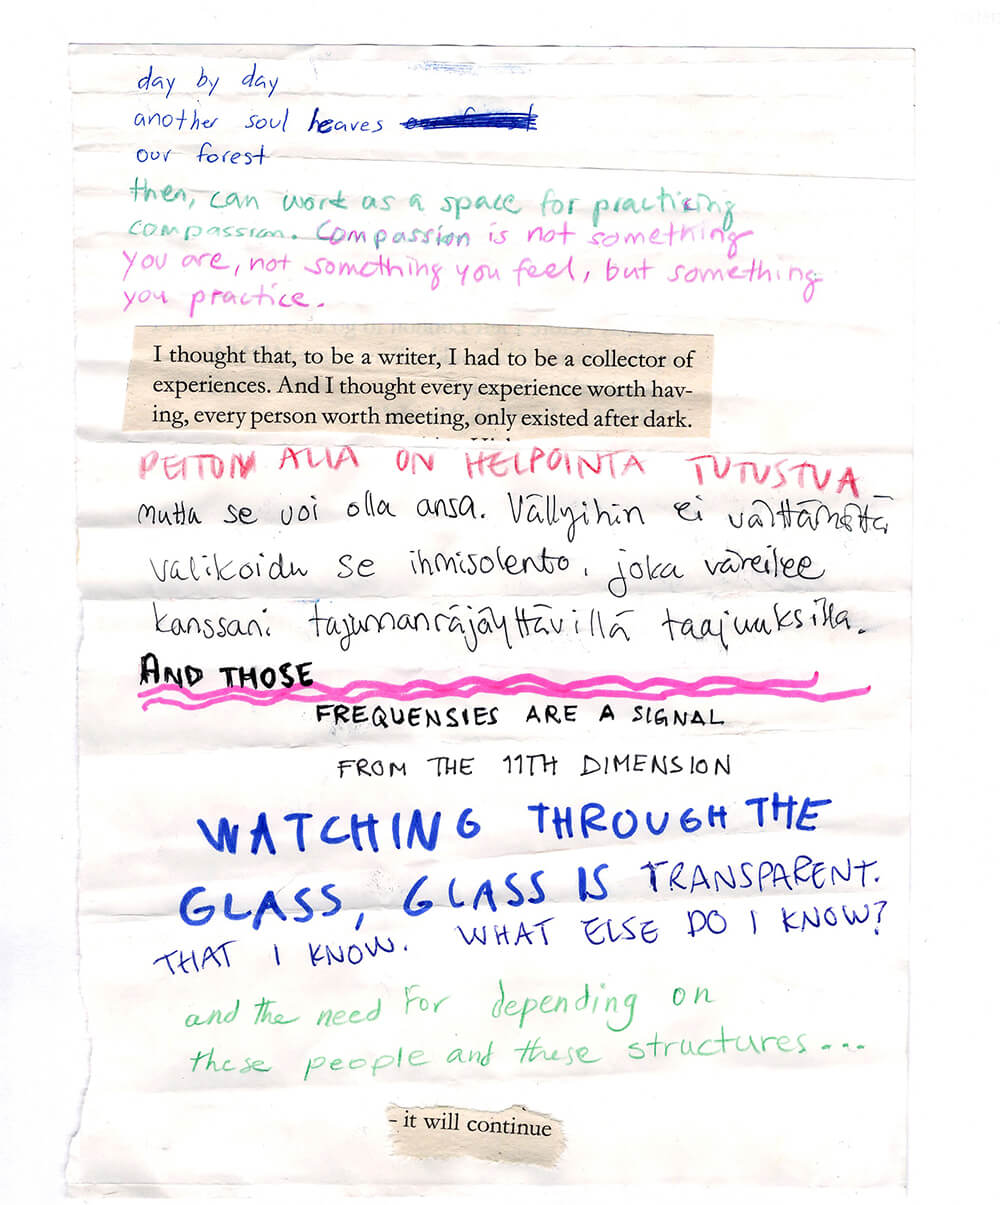 day by day
another soul heaves
our forest
then, can work as a space for practicing
compassion. Compassion is not something
you are, not something you feel, but something
you practice.
I thought that, to be a writer, I had to be a collector of
experiences. And I thought every experience worth hav-
ing, every person worth meeting, only existed after dark.
PEITON ALLA ON HELPOINTA TUTUSTUA
mutta se voi olla ansa. Vällyihin ei välttämättä
valikoidu se ihmisolento, joka väreilee
kanssani tajunnanräjäyttävillä taajuuksilla.
AND THOSE
FREQUENSIES ARE A SIGNAL
FROM THE 11TH DIMENSION
WATCHING THROUGH THE
GLASS, GLASS IS TRANSPARENT.
THAT I KNOW. WHAT ELSE DO I KNOW?
and the need for depending on
these people and these structures....
- it will continue